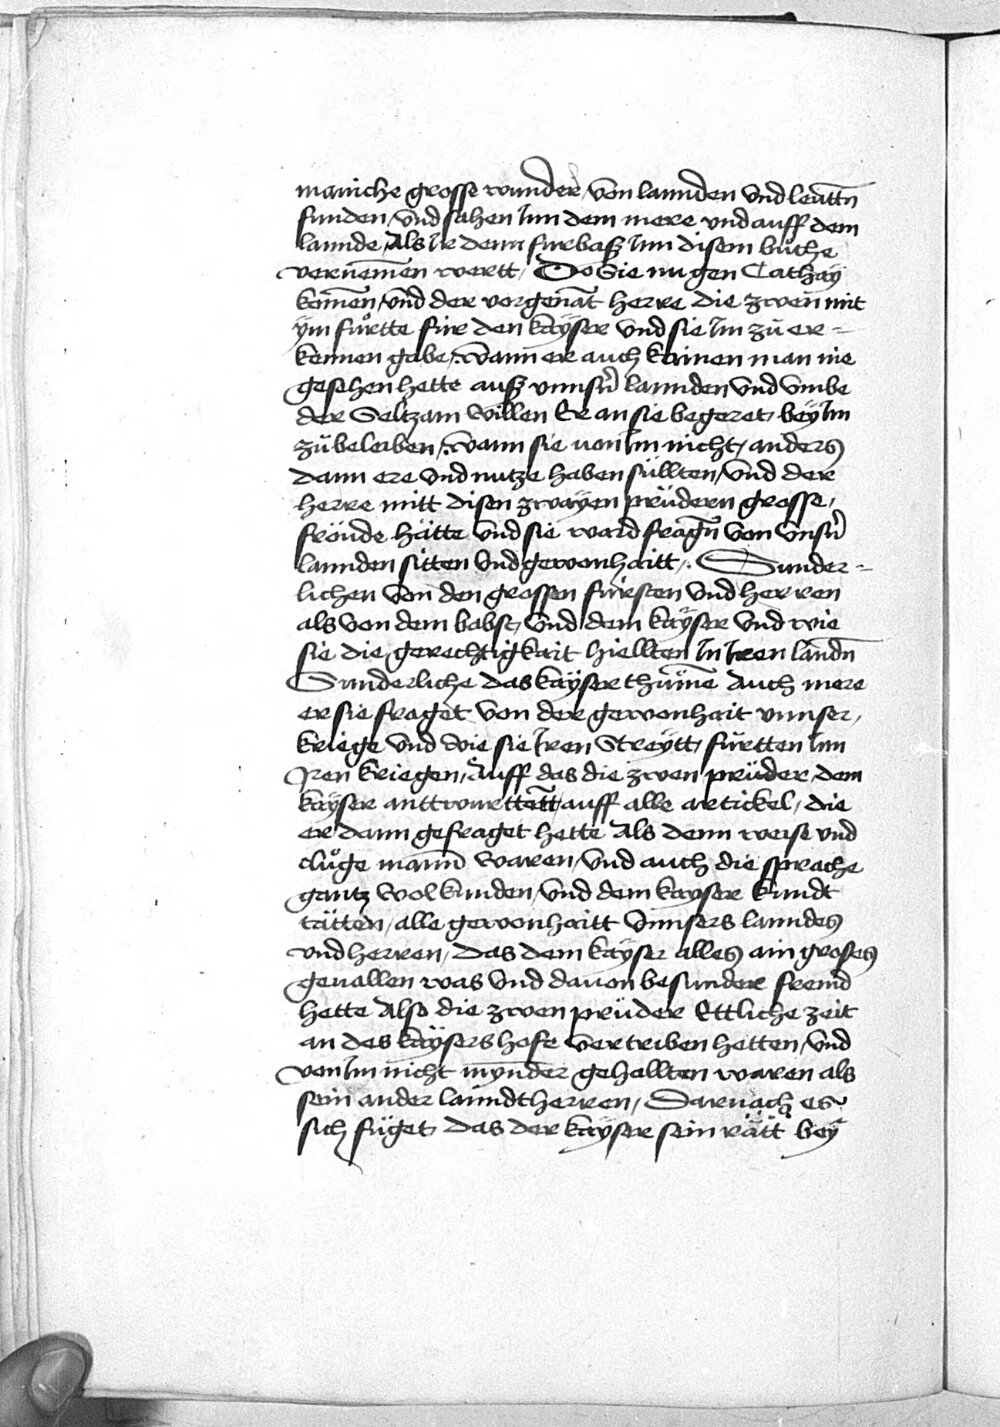 maniche grosse wunder / von lannden vnd leuttn̄
funden / vnd sahen Jnn dem mere vnd auff dem
lannde / Als Jr denn furbaß Jnn disem bůche
vernemen wertt / Do Sie nu gen Cathaÿ
komen / vnd der vorgenāt herre die zwen mit
ÿm fůrtte für den kaÿser vnd sie Jm zů er=
kennen gabe / wann er auch kainen man nie
gesehen hette auß vnnsr̄n lannden vnd vmbe
der Seltzam willen Er an sie begeret / beÿ Jm
zůbeleiben / wann sie von Jm nicht / anders
dann ere vnd nutze haben süllten / vnd der
herre mitt disen zwaÿen prüdern grosse /
fröude hätte vnd sie ward fragn̄ von vnsr̄n
lannden sitten vnd gewonhaitt / Sunder=
lichen von den grossen fürsten vnd herren
als von dem babst / vnd dem kaÿser vnd wie
sie die gerechtigkait hiellten Jn Jren lanndn̄
Sunderliche das kaÿserthůme Auch mere
er sie fraget von der gewonhait vnnser /
kriege vnd wie sie Jren Streÿtt / fůrtten Jnn
Jren kriegen / Auff das die zwen prüder / dem
kaÿser anttwurttatt / auff alle artickel / die
er dann gefraget hette Als denn weise vnd
clůge mann waren / vnd auch die sprache
gantz wol kunden / vnd dem kayser kundt
tätten / alle gewonhaitt vnnsers lanndes
vnd herren / das dem kaÿser alles ain groses
geuallen was vnd dauon besunder fremd
hette Also die zwen prüder Ettliche zeit
an des kaÿsers hofe vertriben hetten / vnd
von Jm nicht mÿnder gehallten waren als
sein ander lanndtherren / Darnach es
sich füget das der kaÿser sein rätt beÿ